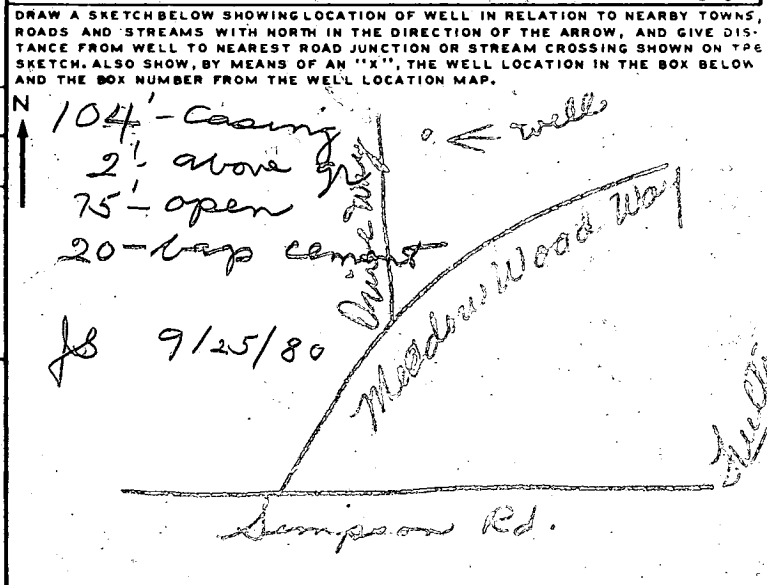 DRAW A SKETCH BELOW SHOWING LOCATION OF WELL IN RELATION TO NEARBY TOWNS,
ROADS AND STREAMS WITH NORTH IN THE DIRECTION OF THE ARROW, AND GIVE DIS-
TANCE FROM WELL TO NEAREST ROAD JUNCTION OR STREAM CROSSING SHOWN ON THE
SKETCH. ALSO SHOW, BY MEANS OF AN "X", THE WELL LOCATION IN THE BOX BELOW
AND THE BOX NUMBER FROM THE WELL LOCATION MAP.
N
104'-Casing
2'- above gr
75'- open
20-bags cement
JS 9/25/80
well
Drive Way
Meadow Wood Way
Simpson Rd.